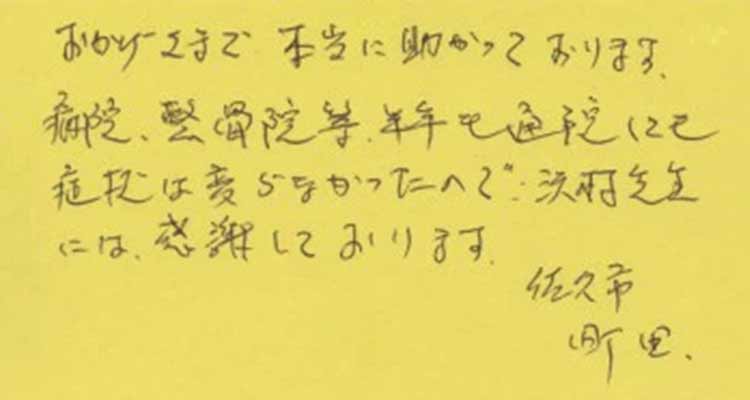 おかげさまで 本当に助かっております。
病院、整骨院等、半年も通院にも
症状は変らなかったので、沢村先生
には、感謝しております。
佐久市
町田、